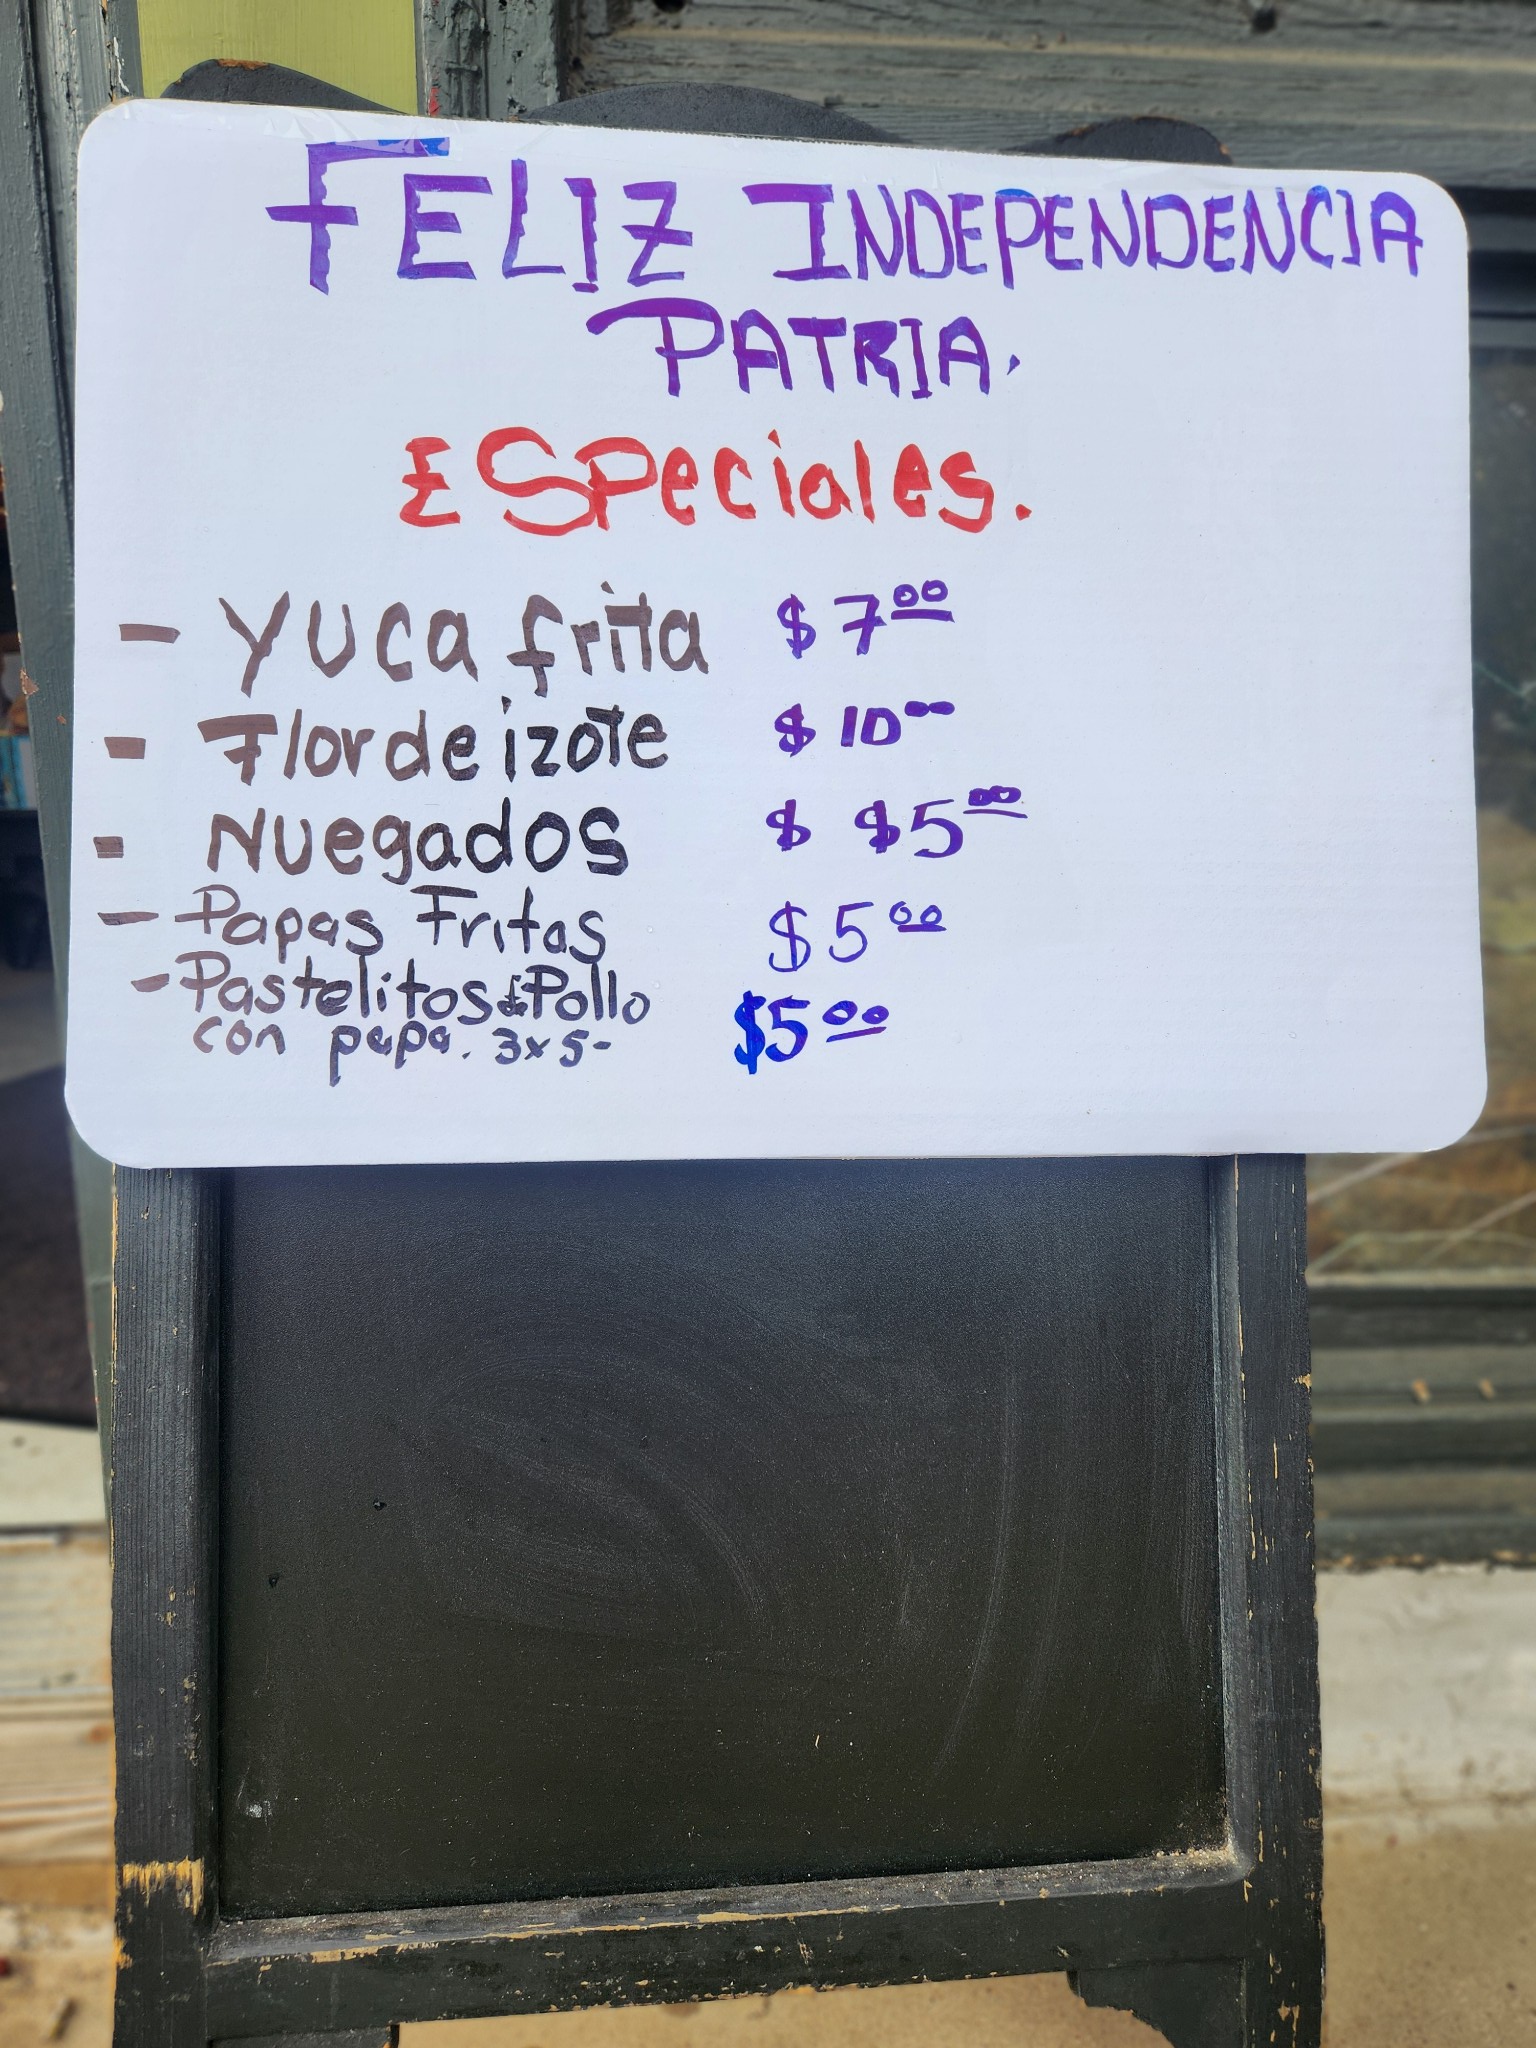 FELIZ INDEPENDENCIA
PATRIA.
ESPeciales.
- YUca frita $7.00
- Flor de izote $10.00
- Nuegados $ $5.00
- Papas Fritas $5.00
- Pastelitos de Pollo
con papa. 3x5- $5.00